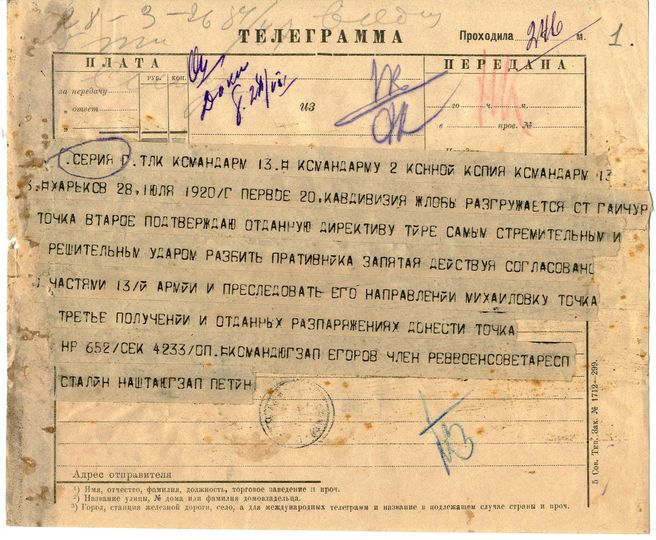 28-3-26
ТЕЛЕГРАММА
Проходила 246 м.
1.
ПЛАТА
РУБ. КОП.
за передачу
ответ
ИЗ
ПЕРЕДАНА
го ч. м.
в пров. №
.СЕРИЯ Г. ТЛК КСМАНДАРМ 13.# КСМАНДАРМУ 2 КСННОЙ КСПИЯ КСМАНДАРМ 13
3.#ХАРЬКОВ 28, ІЮЛЯ 1920/Г ПЕРВОЕ 20, КАВДИВИЗИЯ ЖЛОБЫ РАЗГРУЖАЕТСЯ СТ ГАИЧУР
ТОЧКА ВТАРОЕ ПОДТВЕРЖДАЮ ОТДАННУЮ ДИРЕКТИВУ ТИРЕ САМЫМ СТРЕМИТЕЛЬНЫМ И
РЕШИТЕЛЬНЫМ УДАРОМ РАЗБИТЬ ПРАТИВНИКА ЗАПЯТАЯ ДЕЙСТВУЯ СОГЛАСОВАНО
ЧАСТЯМИ 13/Й АРМИИ И ПРЕСЛЕДОВАТЬ ЕГО НАПРАВЛЕНИЙ МИХАИЛОВКУ ТОЧКА
ТРЕТЬЕ ПОЛУЧЕНИИ И ОТДАННЫХ РАЗПАРЯЖЕНИЯХ ДОНЕСТИ ТОЧКА
НР 652/СЕК 4233/ОП.#КОМАНДЮГЗАП ЕГОРОВ ЧЛЕН РЕВВОЕНСОВЕТАРЕСП
СТАЛИН НАШТАЮГЗАП ПЕТИН
Адрес отправителя
¹) Имя, отчество, фамилия, должность, торговое заведение и проч.
²) Название улицы, № дома или фамилия домовладельца.
³) Город, станция железной дороги, село, а для международных телеграмм и название в подлежащем случае страны и проч.
5 Сов. Тип. Зак. № 1712—299.